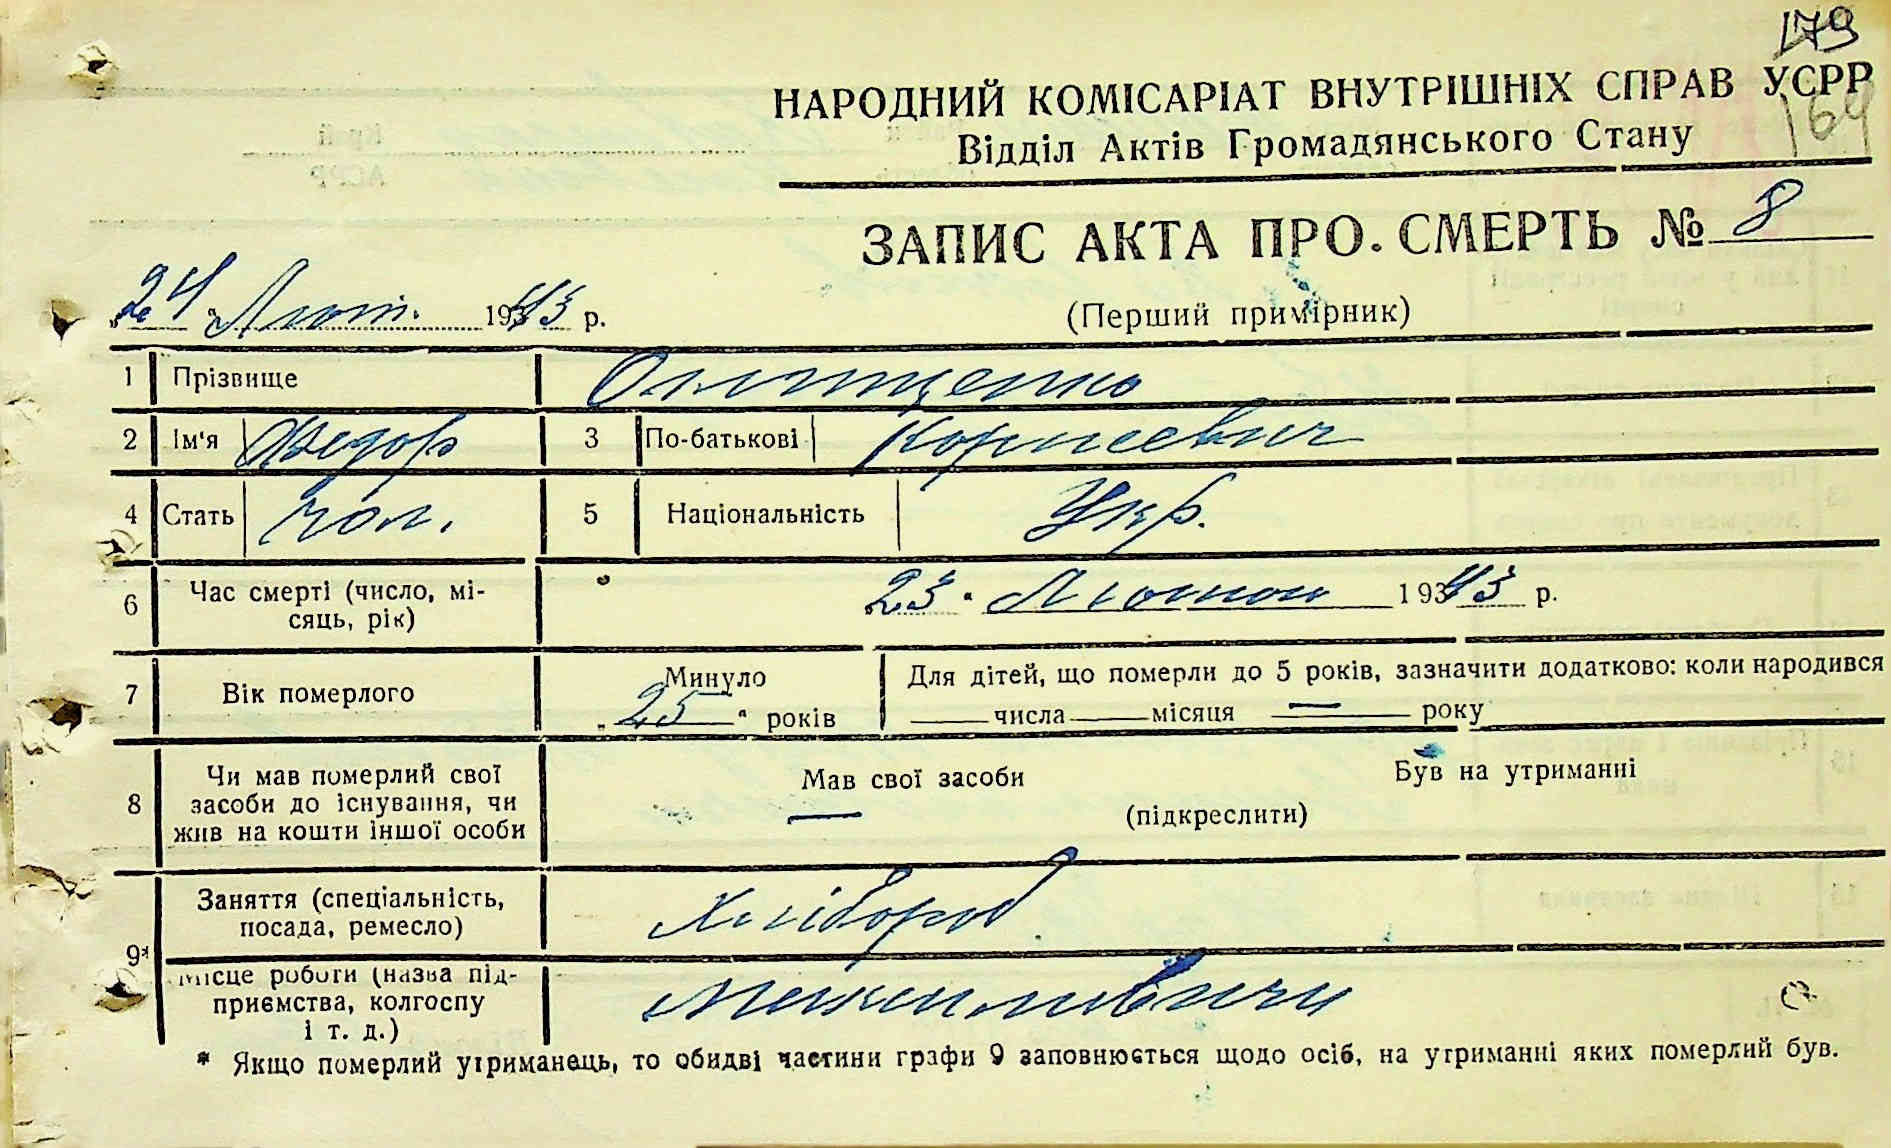 179
НАРОДНИЙ КОМІСАРІАТ ВНУТРІШНІХ СПРАВ УСРР
169
Відділ Актів Громадянського Стану
ЗАПИС АКТА ПРО СМЕРТЬ № 8
„24“ Лют. 1943 р.
(Перший примірник)
1 Прізвище Онищенко
2 Ім'я Федор 3 По-батькові Корнеевич
4 Стать Чол. 5 Національність Укр.
6 Час смерті (число, мі-
сяць, рік) 23 Лютого 1943 р.
7 Вік померлого Минуло „25“ років
Для дітей, що померли до 5 років, зазначити додатково: коли народився
числа — місяця — року
8 Чи мав померлий свої
засоби до існування, чи
жив на кошти іншої особи
Мав свої засоби Був на утриманні
(підкреслити)
9* Заняття (спеціальність,
посада, ремесло) Хлібороб
Місце роботи (назва під-
приємства, колгоспу
і т. д.)
* Якщо померлий утриманець, то обидві частини графи 9 заповнюється щодо осіб, на утриманні яких померлий був.